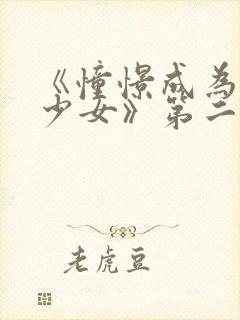 《憧憬成為
少女》第二
老虎豆